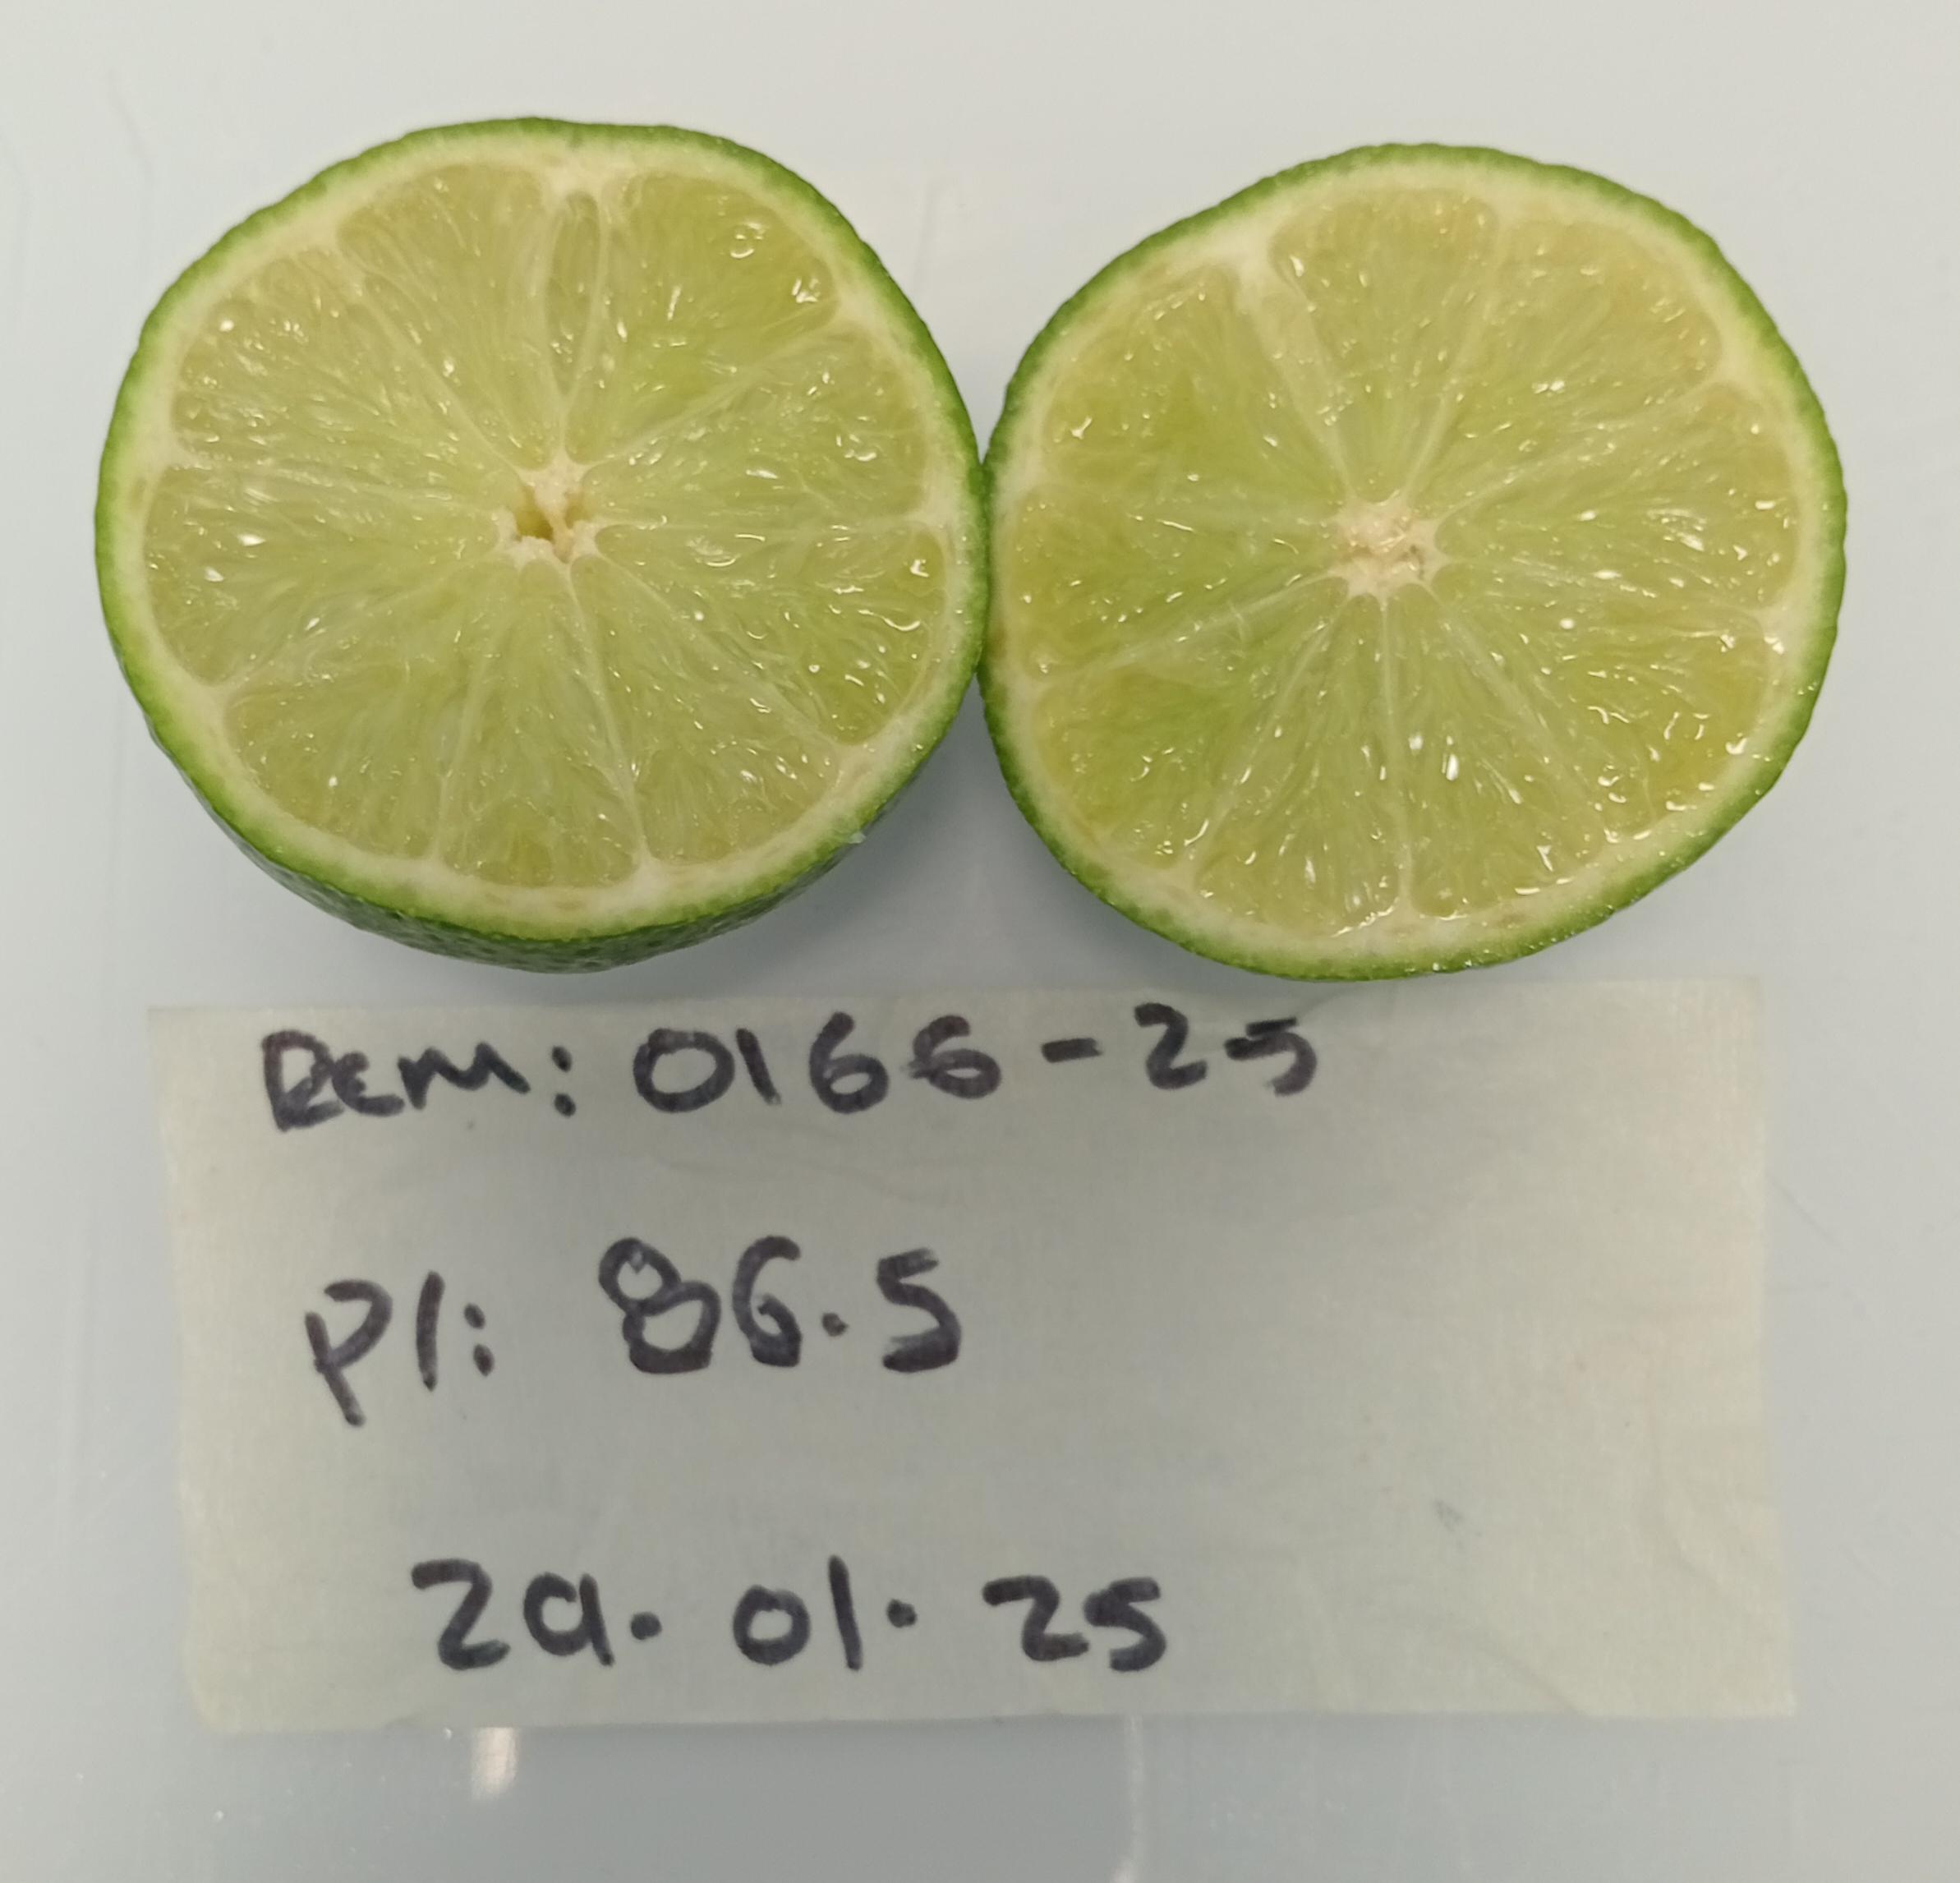 Rem: 0166-25
P1: 86.5
29.01.25